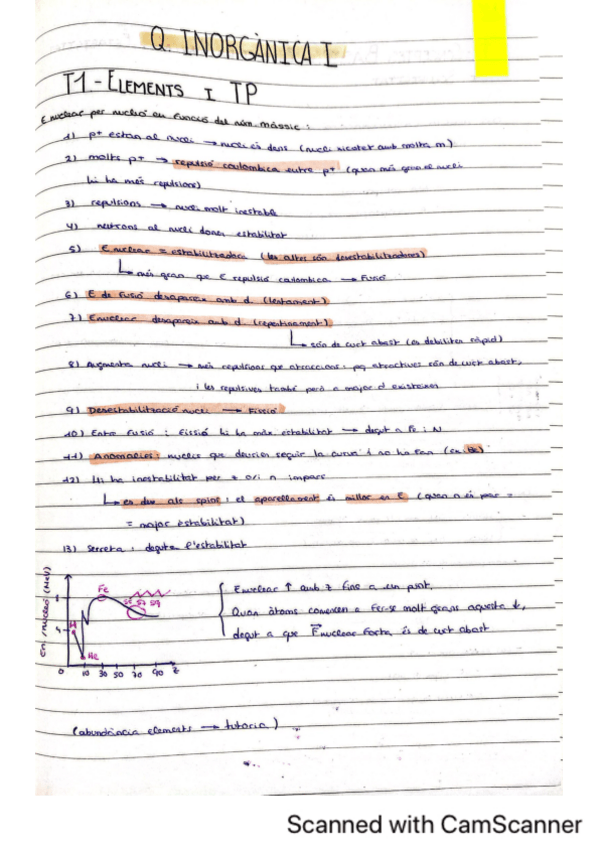 Q. INORGÀNICA I
T1.- ELEMENTS I TP
E nuclear per nucleó en funció del núm. màssic:
1) p+ estan al nucli → nucli és dens (nucli xicotet amb molta m)
2) molts p+ → repulsió coulombica entre p+ (quan més gran el nucli
hi ha més repulsions)
3) repulsions → nucli molt inestable
4) neutrons al nucli donen estabilitat
5) E nuclear = estabilitzadora (les altres són desestabilitzadores)
més gran que E repulsió coulombica → Fusió
6) E de fusió desapareix amb d (lentament)
7) E nuclear desapareix amb d (repentinament)
són de curt abast (es debiliten ràpid)
8) Augmenta nucli → més repulsions que atraccions; pq atractives són de curt abast,
i les repulsives també però a major d existeixen
9) Desestabilització nucli → Fissió
10) Entre fusió i fissió hi ha màx estabilitat → degut a Fe i Ni
11) Anomalies: nuclis que deurien seguir la curva i no ho fan (ex. Be)
12) Hi ha inestabilitat per z o/i n impars
es deu als spins i el aparellament és millor en E (quan n és par =
= major estabilitat)
13) serreta: deguts a l'estabilitat
en. /nucleó (MeV)
Fe
H
He
56 57 59
0 10 30 50 70 90 z
E nuclear ↑ amb z fins a un punt,
Quan àtoms comencen a fer-se molt grans aquesta ↓,
degut a que E nuclear forta és de curt abast
(abundància elements → tutoria)
Scanned with CamScanner